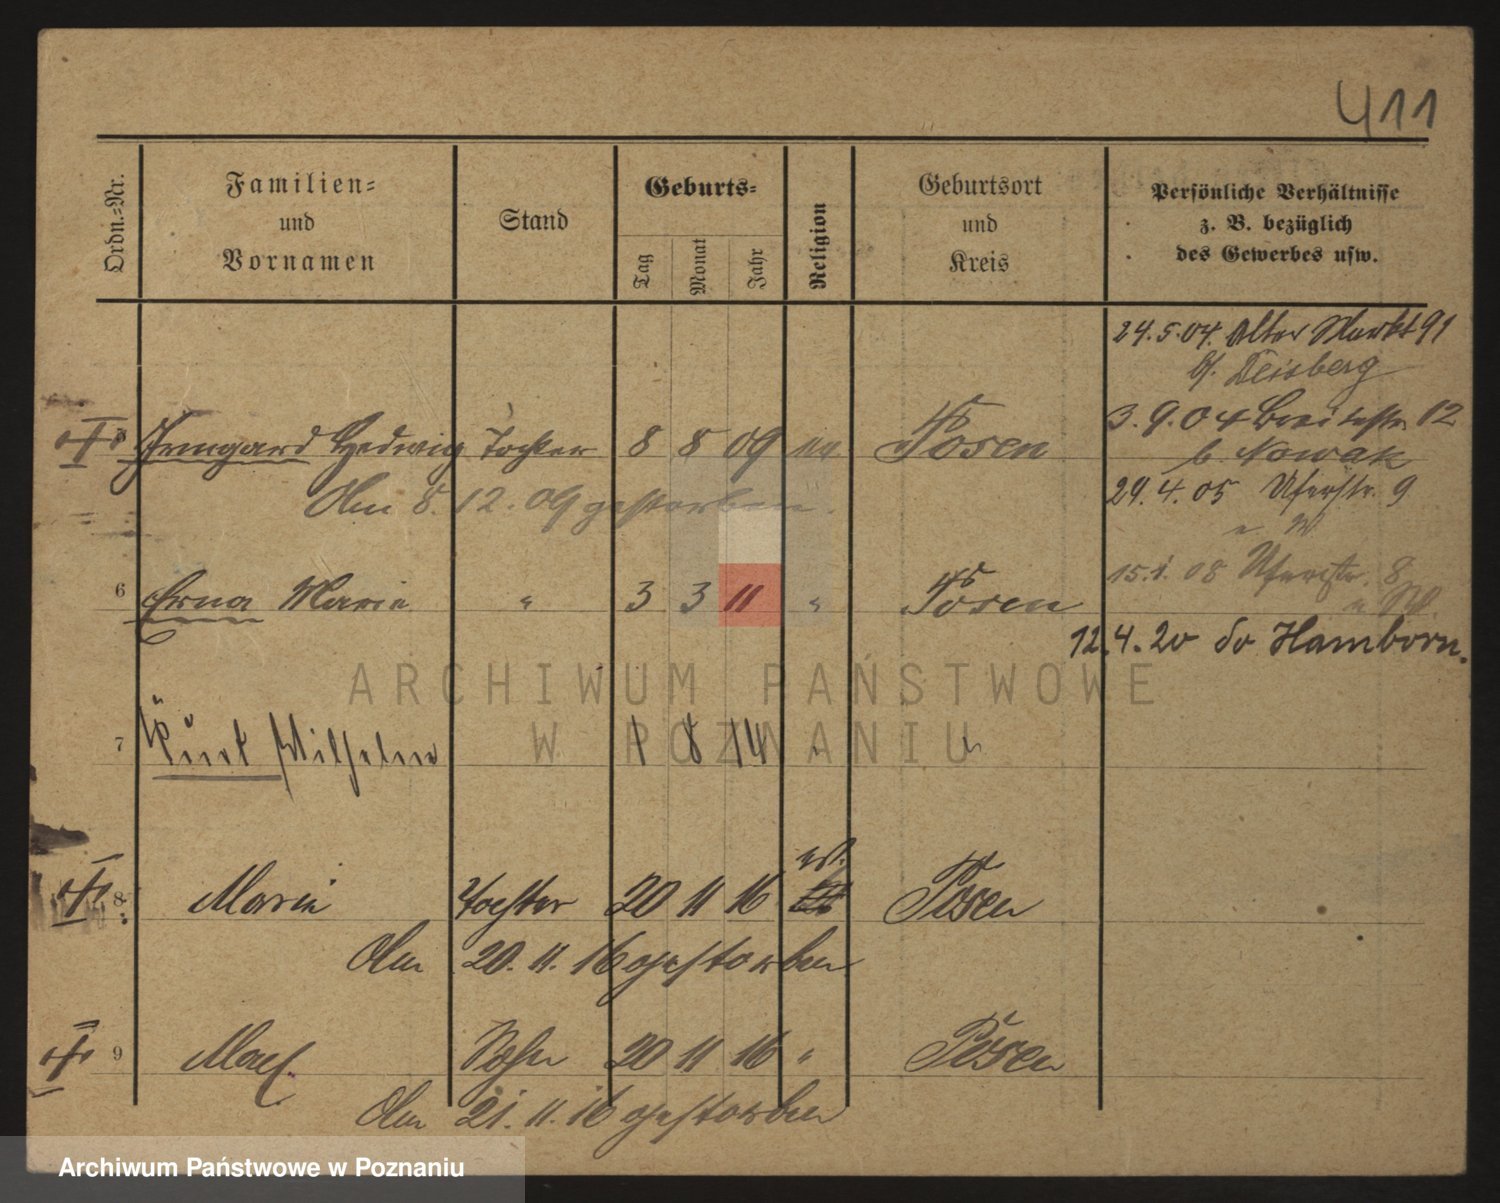 411
Ordn.=Nr.
Familien=
und
Vornamen
Stand
Geburts=
Tag
Monat
Jahr
Religion
Geburtsort
und
Kreis
Persönliche Verhältnisse
z. B. bezüglich
des Gewerbes usw.
24.5.04. Alter Markt 91
b. Deisberg
3.9.04 Breitestr. 12
b. Nowak
Irmgard Hedwig Tochter 8 8 09 Posen
Am 8. 12. 09 gestorben.
29.4.05 Uferstr. 9
15.1.08 Uferstr. 8
6 Erna Marie " 3 3 11 " Posen
12.4.20 do Hamborn.
ARCHIWUM PAŃSTWOWE
W POZNANIU
7 Kurt Wilhelm 1 8 14 " "
8 Marie Tochter 20 11 16 Posen
Am 20. 11. 16 gestorben
9 Max Sohn 20 11 16 " Posen
Am 21. 11. 16 gestorben
Archiwum Państwowe w Poznaniu